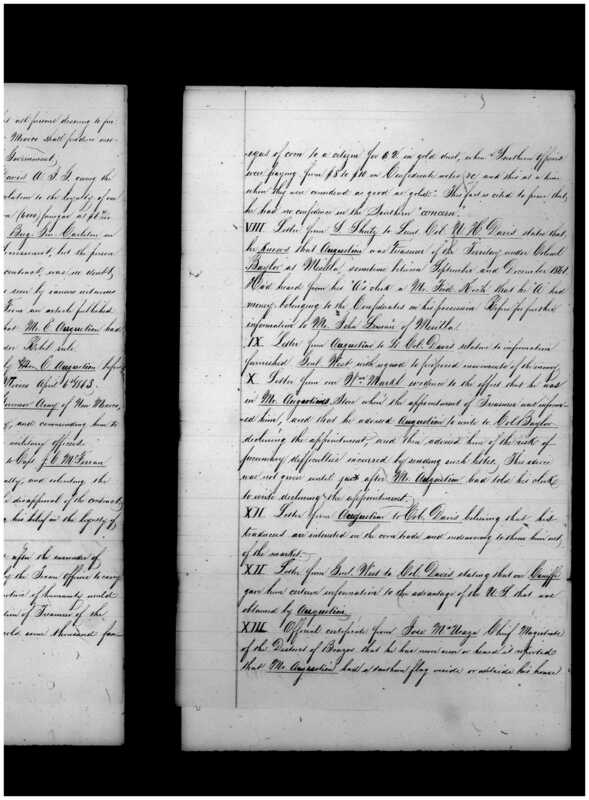 his all persons desiring to fur
Mexico shall produce evi
Government,
Davis A.I.G. caring the
relation to the loyalty of
(6000) fanegas at $
Brig. Gen. Carleton in
Government, but the person
contract, was no doubt
seen by various instances
From an article published
that Mr. E. Augustien had
der Rebel rule.
by Mr. E. Augustien before
Mexico April 6th 1863.
German Army of New Mexico,
and commending him to
military officers.
to Capt. J. C. McFerran
ally, and soliciting the
disapproval of the contract;
his belief in the loyalty of
after the surrender of
by the Texan Officers to carry
of humanity would
tion of Treasurer of the
sold some thousand fan
egas of corn to a citizen for $2. in gold dust, when Southern Officers
were paying from $8 to $10 in Confederate notes, and this at a time
when they were considered as good as gold. This fact is cited to prove that,
he had no confidence in the Southern concern.
VIII. Letter from L. Shutz to Lieut Col. N. H. Davis states that
he knows that Augustien was Treasurer of the Territory under Colonel
Baylor at Mesilla, sometime between September and December 1861.
Had heard from his (A's) clerk a Mr. Fred. Koch that he (A) had
money belonging to the Confederates in his possession. Refers for further
information to Mr. John Lemon of Mesilla.
IX. Letter from Augustien to Lt. Col. Davis relative to information
furnished Genl West with regard to proposed movements of the enemy.
X. Letter from one Wm. Markt evidence to the effect that he was
in Mr. Augustien's Store when the appointment of Treasurer was inform-
ed him, and that he advised Augustien to write to Col. Baylor
declining the appointment, and then advised him of the risk of
pecuniary difficulties incurred by sending such letter. This advice
was not given until just after Mr. Augustien had told his clerk
to write declining the appointment.
XI. Letter from Augustien to Col. Davis believing that his
traducers are interested in the corn trade and endeavoring to throw him out,
of the market.
XII. Letter from Genl West to Col. Davis stating that one Cuniffe
gave him certain information to the advantage of the U.S. that was
obtained by Augustien.
XIII. Official certificate from Jose Ma. Chief Magistrate
of the District of that he has never seen or heard it reported
that Mr. Augustien had a southern flag inside or outside his house